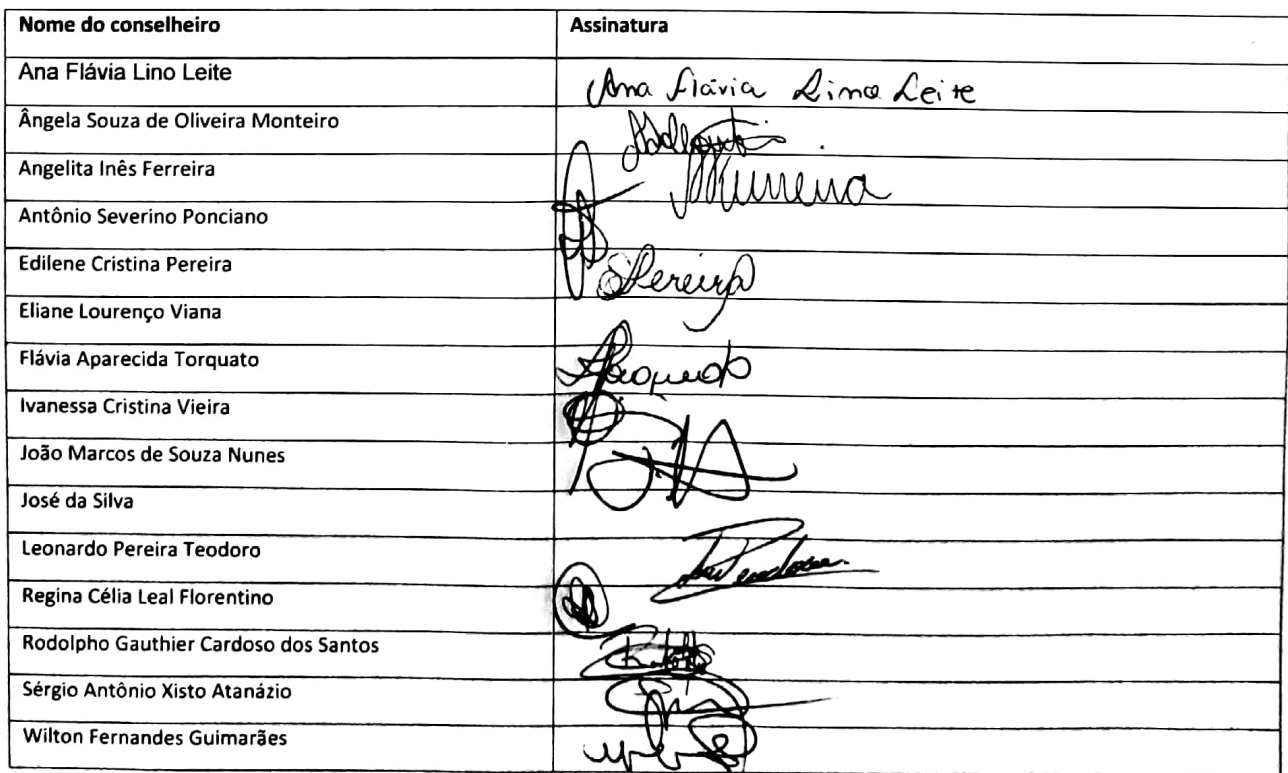 Nome do conselheiro Assinatura
Ana Flávia Lino Leite Ana Flávia Lino Leite
Ângela Souza de Oliveira Monteiro
Angelita Inês Ferreira
Antônio Severino Ponciano
Edilene Cristina Pereira Pereira
Eliane Lourenço Viana
Flávia Aparecida Torquato
Ivanessa Cristina Vieira
João Marcos de Souza Nunes
José da Silva
Leonardo Pereira Teodoro
Regina Célia Leal Florentino
Rodolpho Gauthier Cardoso dos Santos
Sérgio Antônio Xisto Atanázio
Wilton Fernandes Guimarães